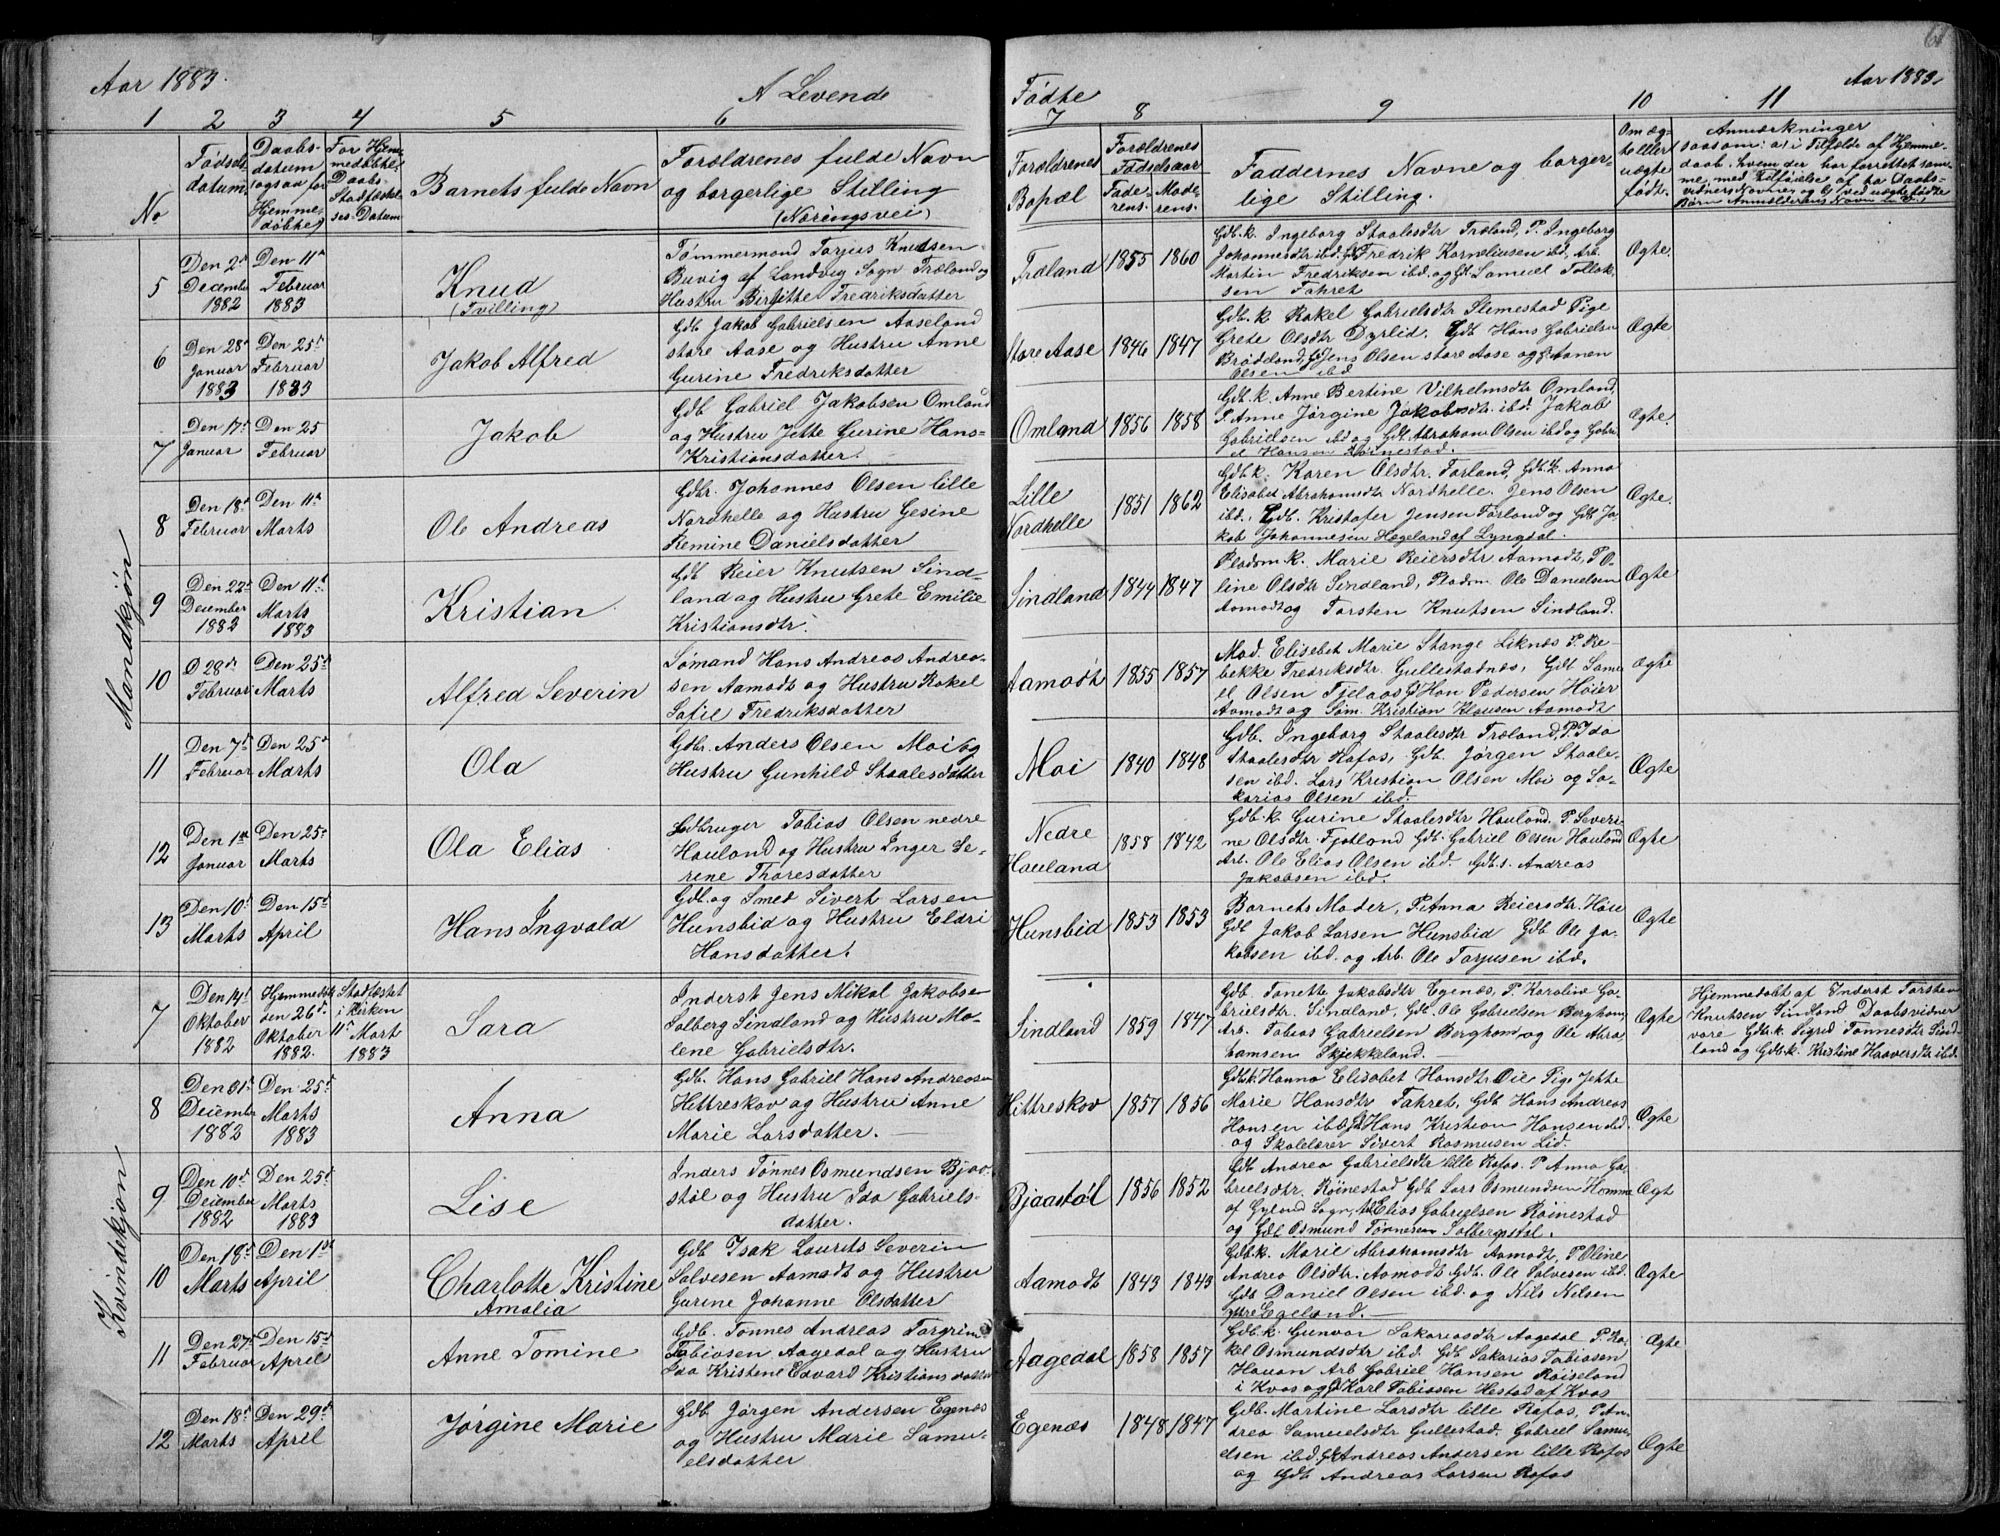 61
Aar 1883.
A Levende
Fødte
Aar 1883.
1 2 3 4 5 6 7 8 9 10 11
No
Fødsels
datum.
Daabs-
datum
ogsaa for
Hjemme-
døbte
For Hjem-
medøbte
Daabs-
Stadfæstel-
ses-Datum
Barnets fulde Navn
Forældrenes fulde Navn
og borgerlige Stilling
(Næringsvei)
Forældrenes
Bopæl
Forældrenes
Fødselsaar
Fade-
rens.
Mode-
rens.
Faddernes Navne og borger-
lige Stilling.
Om æg-
te eller
uægte
født.
Anmærkninger
saasom: a) i Tilfælde af Hjemme-
daab, hvem der har forrettet sam-
me, med Tilføielse af to Daabs-
vidners Navne, og b) ved uægte fødte
Børn Anmelderens Navn
Mandkjøn
5
Den 2d
December
1882
Den 11te
Februar
1883
Knud
(Tvilling)
Tømmermand Torjus Knutsen
Buvig af Landvig Sogn Træland og
Hustru Birgitte Fredriksdatter
Træland
1855 1860
Gdb.k. Ingeborg Staalesdtr Træland, P. Ingeborg
Johannesdtr ibd. Fredrik Korneliusen ibd, Arb.
Martin Fredriksen ibd. og Gdb Samuel Tollak-
sen Fahret
Ægte.
6
Den 28d
Januar
1883
Den 25d
Februar
1883
Jakob Alfred
Gdb Jakob Gabrielsen Aaseland
store Aase og Hustru Anne
Gurine Fredriksdatter
Store Aase
1846 1847
Gdb.k. Rakel Gabrielsdtr Stemestad Pige
Grete Olsdtr Dyrlid. Gdb Hans Gabrielsen
Brådeland, Gdb Jens Olsen store Aase og Aanen
Olsen ibd
Ægte
7
Den 17d
Januar
Den 25
Februar
Jakob
Gdb Gabriel Jakobsen Omland
og Hustru Jette Gurine Hans-
Kristiansdatter.
Omland
1856 1858
Gdb.k. Anne Bertine Vilhelmsdtr Omland,
P. Anne Jørgine Jakobsdtr. ibd. Jakob
Gabrielsen ibd og Gdb. Abraham Olsen ibd og Gabri-
el Hansen Røinestad.
Ægte.
8
Den 18d
Februar
Den 11te
Marts
Ole Andreas
Gdbr. Johannes Olsen lille
Nordhelle og Hustru Gesine
Remine Danielsdatter
Lille
Nordhelle
1851 1862
Gdb.k. Karen Olsdtr. Forland, Gdb.k. Anna
Elisabet Abrahamsdtr Nordhelle. Jens Olsen
ibd. Gdb. Kristofer Jensen Forland og Gdb Ja-
kob Johannesen Hægeland af Lyngdal.
Ægte
9
Den 22d
December
1882
Den 11te
Marts
1883
Kristian
Gdb Reier Knutsen Sind-
land og Hustru Grete Emilie
Kristiansdtr.
Sindland
1844 1847
Pladsm.k. Marie Reiersdtr Aamodt, P. O-
line Olsdtr Sindland, Pladsm. Ole Danielsen
Aamodt og Torsten Knutsen Sindland.
Ægte
10
D 28de
Februar
Den 25d
Marts
Alfred Severin
Sømand Hans Andreas Andrea-
sen Aamodt og Hustru Rakel
Sofie Fredriksdatter
Aamodt
1855 1857
Mad. Elisebet Marie Stange Liknes P. Re-
bekke Fredriksdtr Gullestadnæs, Gdb Samu-
el Olsen Fjelaas, Han Pedersen Høier
Aamodt og Søm. Kristian Klausen Aamodt
Ægte
11
Den 7d
Februar
Den 25d
Marts
Ola
Gdbr. Anders Olsen Moi og
Hustru Gunhild Staalesdatter
Moi
1840 1848
Gdb. Ingeborg Staalesdtr Træland, P. Ida
Staalesdtr Rafos, Gdb. Jørgen Staale-
sen ibd. Lars Kristian Olsen Moi og Sa-
karias Olsen ibd.
Ægte
12
Den 1ste
Januar
Den 25d
Marts
Ola Elias
Gdbruger Tobias Olsen nedre
Hauland og Hustru Inger Se-
rene Thoresdatter
Nedre
Hauland
1858 1842
Gdb.k Gurine Staalesdtr Hauland. P. Severi-
ne Olsdtr Fjotland Gdb Gabriel Olsen Hauland
Arb. Ole Elias Olsen ibd. Gdb.s. Andreas
Jakobsen ibd.
Ægte
13
Den 10d
Marts
Den 15d
April
Hans Ingvald
Gdb. og Smed Sivert Larsen
Hunsbid og Hustru Eldri
Hansdatter.
Hunsbid
1853 1853
Barnets Moder, P. Anna Reiersdtr. Høie
Gdb Jakob Larsen Hunsbid Gdb Ole Ja-
kobsen ibd. og Arb. Ole Torjusen ibd.
Ægte
Kvindekjøn
7
Den 14d
Oktober
1882
Hjemmedøbt
den 26d.
Oktober
1882.
Stadfæstet
i Kirken
11te Mart
1883
Sara
Inderst Jens Mikal Jakobsen
Solberg Sindland og Hustru Ma-
lene Gabrielsdtr.
Sindland
1859 1847
Gdb Tonette Jakobsdtr Egenæs, P. Karoline Ga-
brielsdtr. Sindland, Gdb. Ole Gabrielsen Berghom,
Arb. Tobias Gabrielsen Berghom og Ole Abra-
hamsen Skjekkeland.
Ægte
Hjemmedøbt af Inderst Torsten
Knutsen Sindland Daabsvidner
vare Gdb.k. Sigrid Tønnesdtr Sind-
land og Gdb.k. Kristine Haaversdtr ibd.
8
Den 31d
December
1882
Den 25d
Marts
1883
Anna
Gdb. Hans Gabriel Hans Andreasen
Hittreskov og Hustru Anne
Marie Larsdatter.
Hittreskov
1857 1856
Gdb.k. Hanna Elisabet Hansdtr Øie Pige Jette
Marie Hansdtr Fahret, Gdb Hans Andreas
Hansen ibd, Hans Kristian Hansen ibd.
og Skolelærer Sivert Rasmusen Lid.
Ægte
9
Den 10d
December
1882
Den 25d
Marts
1883
Lise
Inders Tønnes Osmundsen Bjaa-
støl og Hustru Ida Gabriels-
datter.
Bjaastøl
1856 1852
Gdb Andrea Gabrielsdtr lille Rafos. P. Anna Ga-
brielsdtr. Røinestad Gdb Lars Osmundsen Homme
af Gyland Sogn, Elias Gabrielsen Røinestad
og Gdb Osmund Tønnesen Solbergstøl.
Ægt
10
Den 18d
Marts
Den 1ste
April
Charlotte Kristine
Amalia
Gdb Isak Laurits Severin
Salvesen Aamodt og Hustru
Gurine Johanne Olsdatter
Aamodt
1843 1843
Gdb.k. Marie Abrahamsdtr Aamodt, P. Oline
Andrea Olsdtr. Aamodt Gdb. Ole Salvesen ibd.
Gdb Daniel Olsen ibd. og Nils Nilsen
Egeland.
Ægte
11
Den 27d
Februar
Den 15d
April
Anne Tomine
Gdb. Tønnes Andreas Torgrim
Tobiasen Aagedal og Hustru
Ida Kristene Edvard Kristiansdatter
Aagedal
1858 1857
Gdb.k. Gunvor Sakariasdtr Aagedal P. Ra-
kel Osmundsdtr ibd. Gdb Sakarias Tobiasen
Hauan Arb Gabriel Hansen Røiseland
i Kvas og Karl Tobiasen Hestad af Kvas
Ægte
12
Den 18d
Marts
Den 29d
April
Jørgine Marie
Gdb Jørgen Andersen Egenæs
og Hustru Marie Samu-
elsdatter
Egenæs
1848 1847
Gdb. Martine Larsdtr lille Rafos, P. An-
drea Samuelsdtr Gullestad Gabriel Samu-
elsen ibd. Andreas Andersen lille Rafos
og Gdb Andreas Larsen Rafos
Ægte